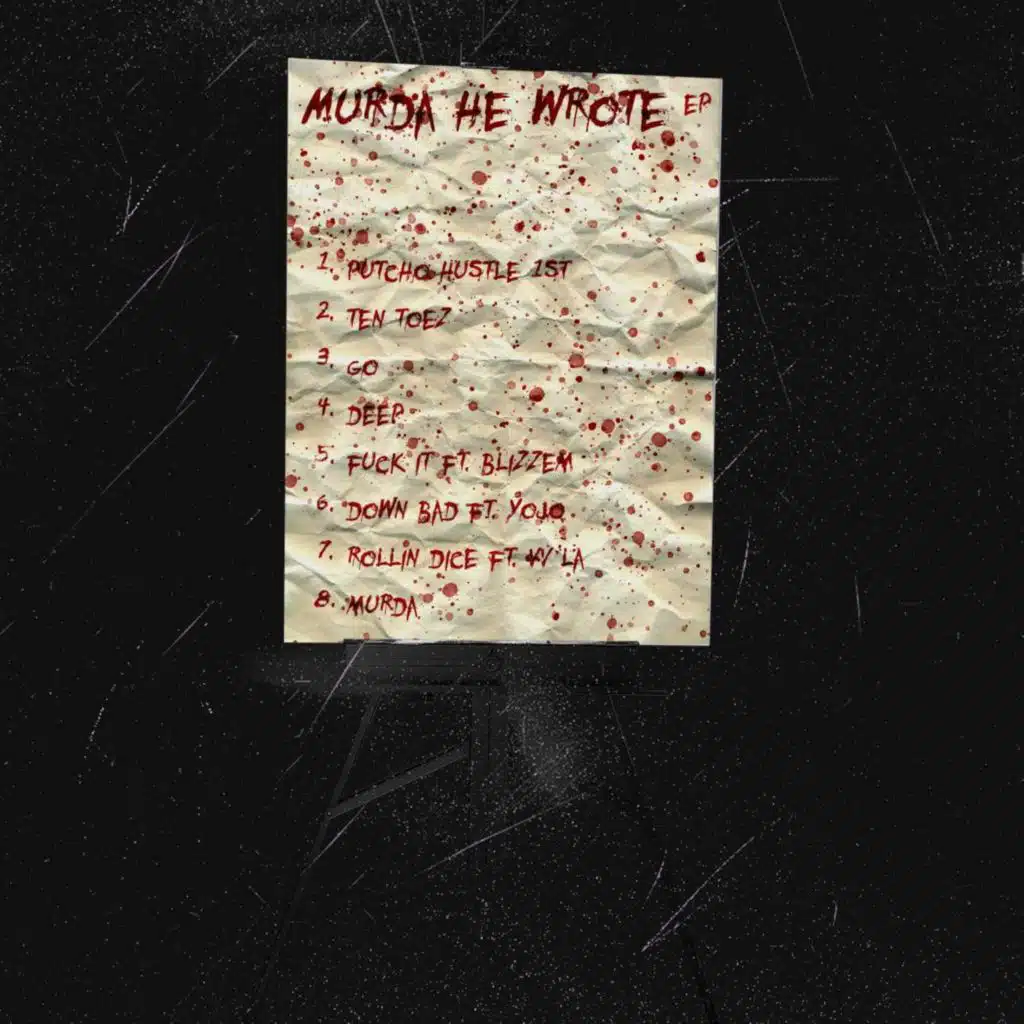 MURDA HE WROTE EP
1. PUTCHO HUSTLE 1ST
2. TEN TOEZ
3. GO
4. DEEP
5. FUCK IT FT. BLIZZEM
6. DOWN BAD FT. YOJO
7. ROLLIN DICE FT. W'LA
8. MURDA